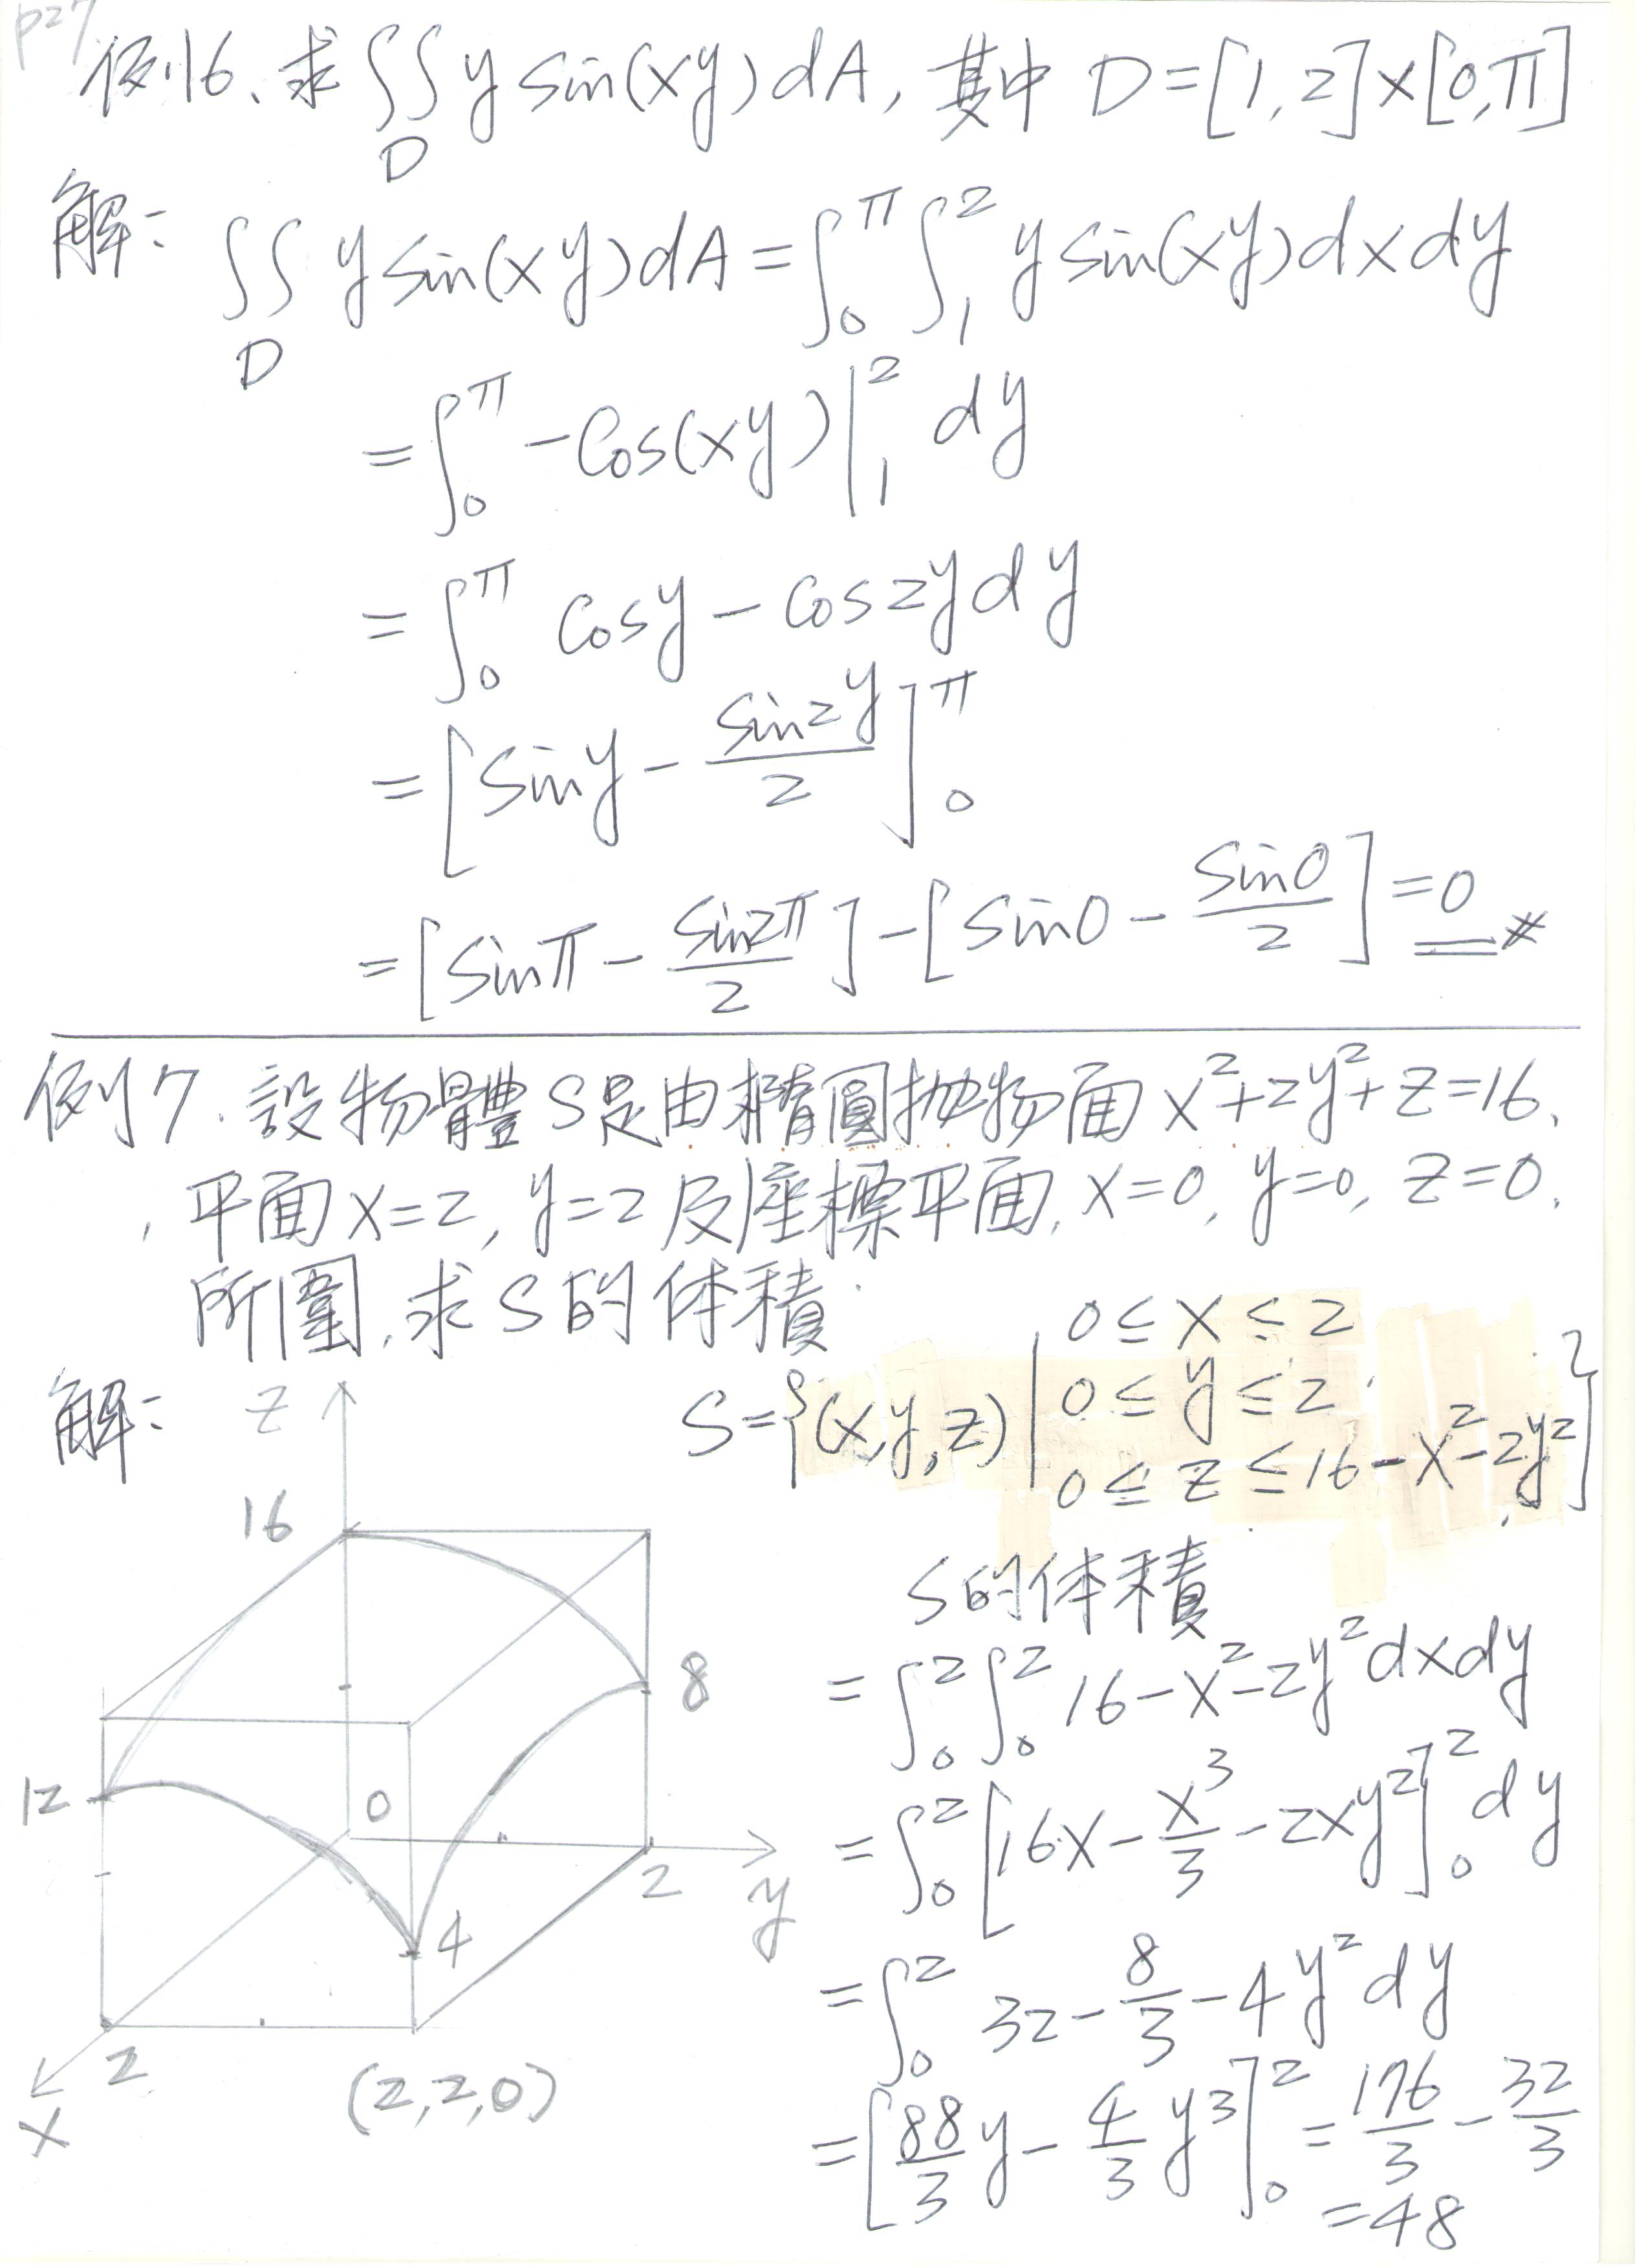 p27
例6、求 ∬_D y sin(xy) dA, 其中 D=[1,2]×[0,π]
解: ∬_D y sin(xy) dA = ∫_0^π ∫_1^2 y sin(xy) dx dy
= ∫_0^π -cos(xy)|_1^2 dy
= ∫_0^π cos y - cos 2y dy
= [sin y - sin2y/2]_0^π
= [sinπ - sin2π/2] - [sin0 - sin0/2] = 0 ※
例7. 設物體S是由橢圓拋物面 x²+2y²+z=16,
, 平面 x=2, y=2 及座標平面, x=0, y=0, z=0.
所圍, 求S的体積.
解: S={(x,y,z)| 0≤x≤2
0≤y≤2
0≤z≤16-x²-2y²}
S的体積
= ∫_0^2 ∫_0^2 16-x²-2y² dx dy
= ∫_0^2 [16x - x³/3 - 2xy²]_0^2 dy
= ∫_0^2 32 - 8/3 - 4y² dy
= [88/3 y - 4/3 y³]_0^2 = 176/3 - 32/3
= 48
z
16
8
12
0
2
y
4
2
x
(2,2,0)